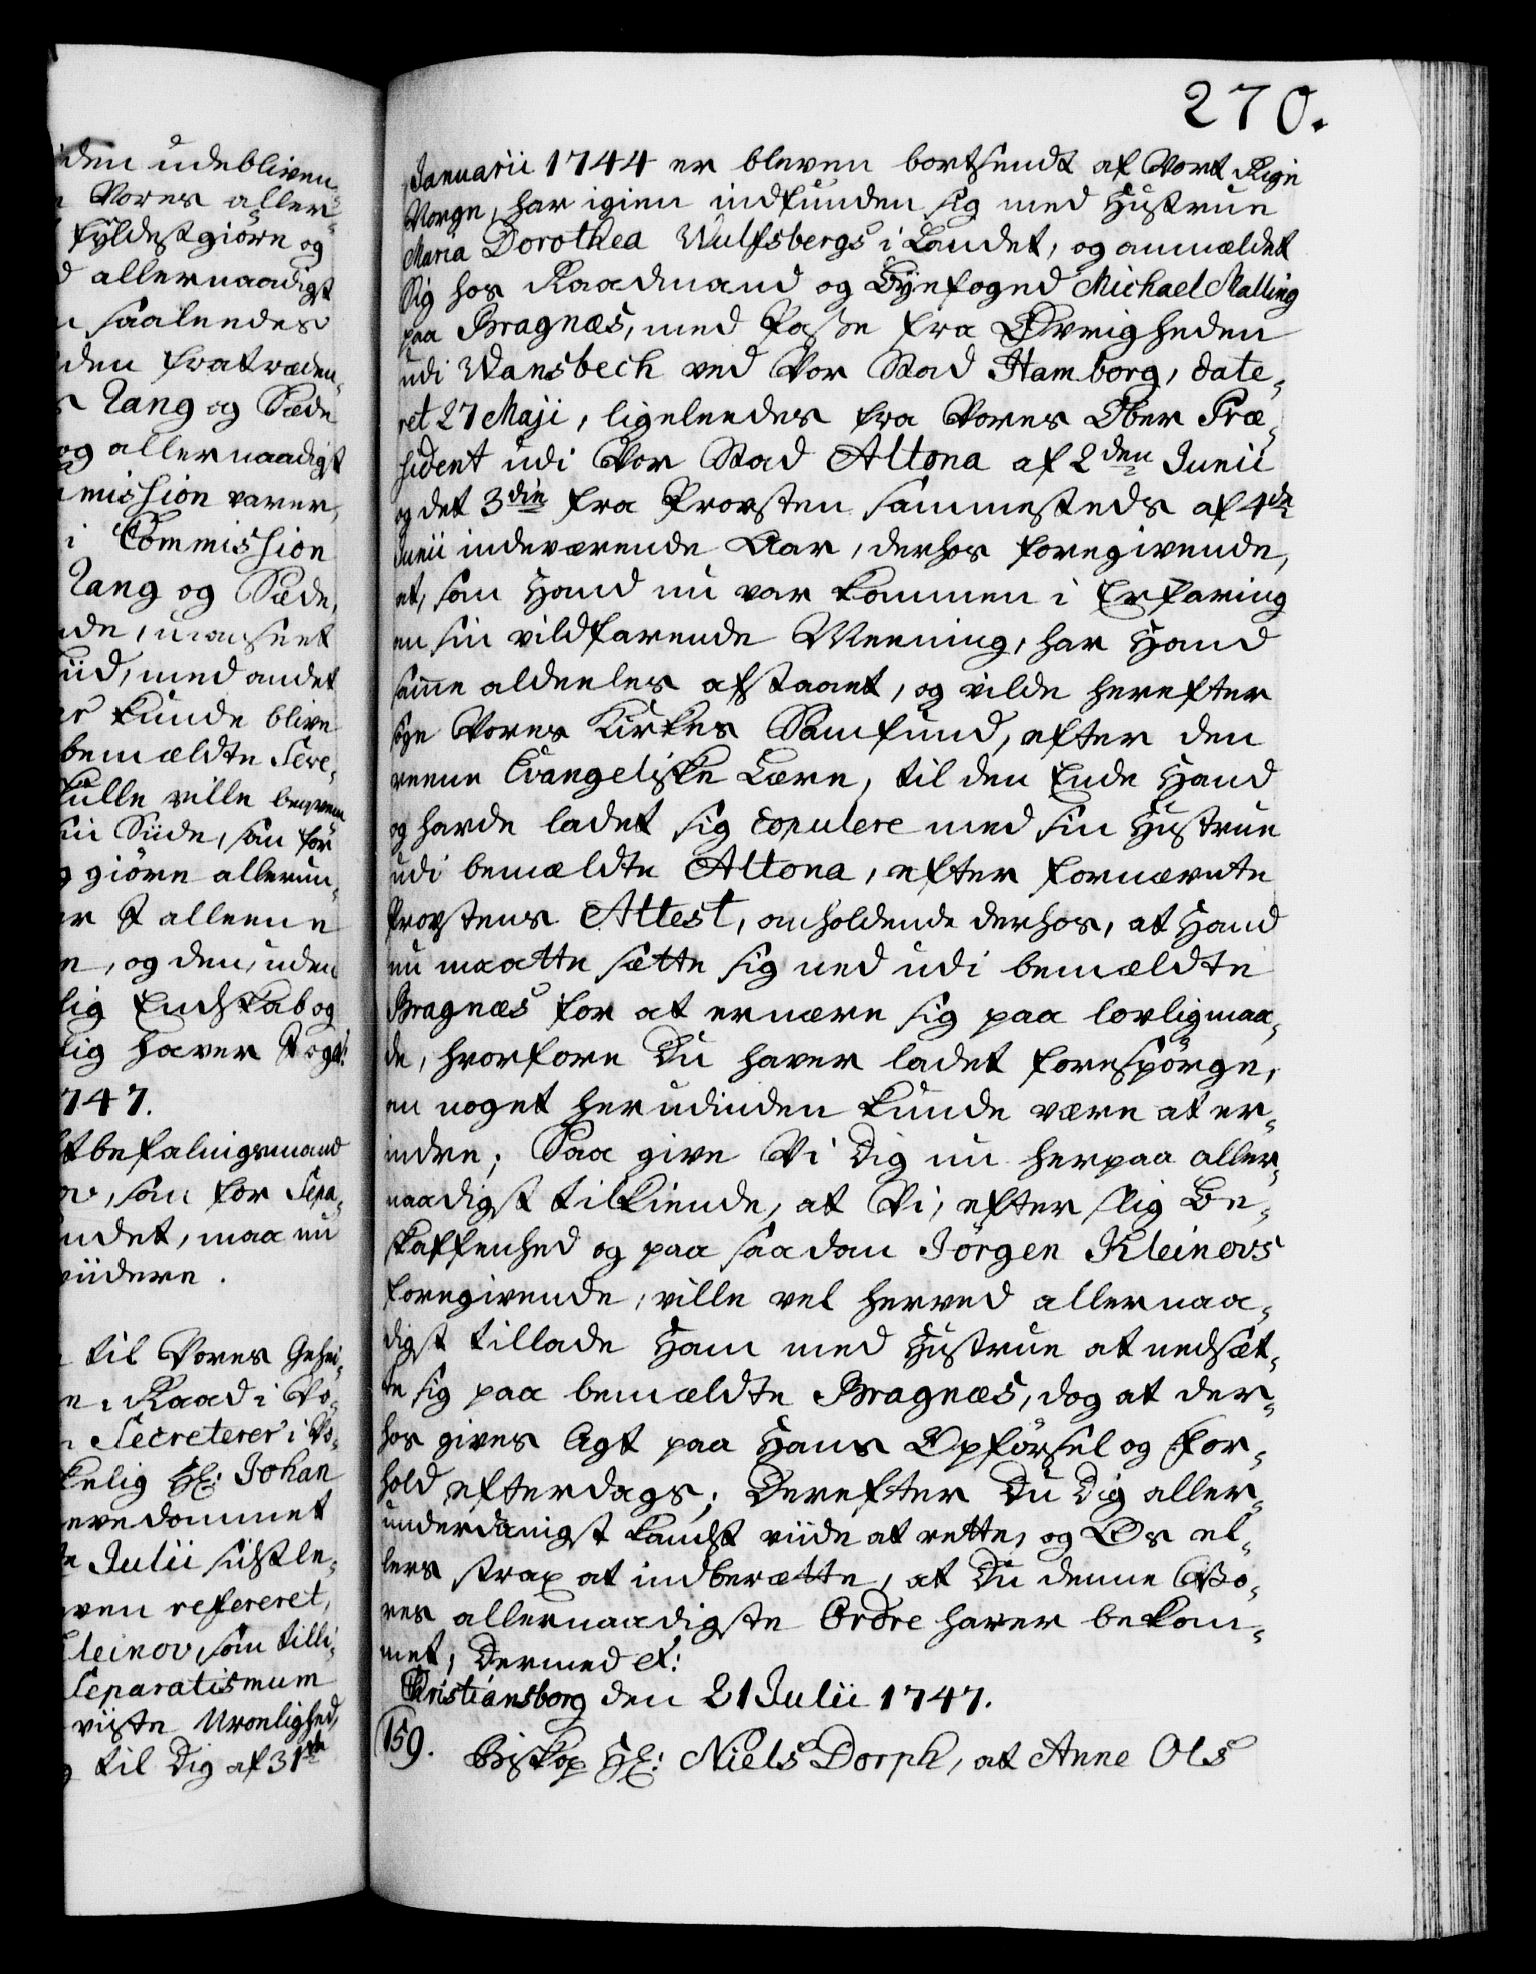 270.
iden udebliven
Vores aller¬
fyldestgiøre og
d allernaadigst
saaledes
den fratræden¬
Rang og Sæde
og allernaadigst
mission varer,
i Commission
Rang og Sæde,
de, uanseet
tiid, med andet
kunde blive
bemældte Secre¬
skulle ville
Siide, som for
giøre allerun¬
alleene
, og den, uden
lig Endskab og
lig haver
747.
tbefalingsmand
ov, som for Sepa¬
ndet, maa nu
viidere.
til Vores Gehei¬
Raad i Vo¬
Secreterer i Vo¬
kelig Hr: Johan
dommet
Julii sidstle¬
ven refereret,
Kleinov, som tilli¬
Separatismum
viiste Uroelighed,
til Dig af 31te
Januarii 1744 er bleven bortsendt af Vort Rige
Norge, har igien indfunden sig med Hustrue
Maria Dorothea Wulfsbergs i Landet, og anmældet
sig hos Raadmand og Byefoged Michael Malling
paa Bragnæs, med Passe fra Øvrigheden
udi Wansbech ved Vor Stad Hamborg, date¬
ret 27 Maji, ligeledes fra Vores Ober Præ¬
sident udi Vor Stad Altona af 2den Junii
og det 3die fra Provsten sammesteds af 4de
Junii indeværende Aar, derhos foregivende,
at, som Hand nu var kommen i Erfaring
om sin vildfarende Meening, har Hand
samme aldeeles afstaaet, og vilde herefter
søge Vores Kirkes Samfund, efter den
reene Evangeliske Lære, til den Ende Hand
og havde ladet sig copulere med sin Hustrue
udi bemældte Altona, efter fornævnte
Provstens Attest, anholdende derhos, at Hand
nu maatte sætte sig ned udi bemældte
Bragnæs for at ernære sig paa lovligmaa¬
de, hvorfore Du haver ladet forespørge,
om noget herudinden kunde være at er¬
indre; Saa give Vi Dig nu herpaa aller¬
naadigst tilkiende, at Vi, efter slig Be¬
skaffenhed og paa saadan Jørgen Kleinovs
foregivende, ville vel herved allernaa¬
digst tillade Ham med Hustrue at nedsæt¬
te sig paa bemældte Bragnæs, dog at der¬
hos gives Agt paa Hans Opførsel og For¬
hold efterdags; Derefter Du Dig aller¬
underdanigst kandst viide at rette, og Os el¬
lers strax at indberætte, at Du denne Vo¬
res allernaadigste Ordre haver bekom¬
met, Dermed et:
Christiansborg den 21 Julii 1747.
159. Biskop Hr: Niels Dorph, at Anne Ols